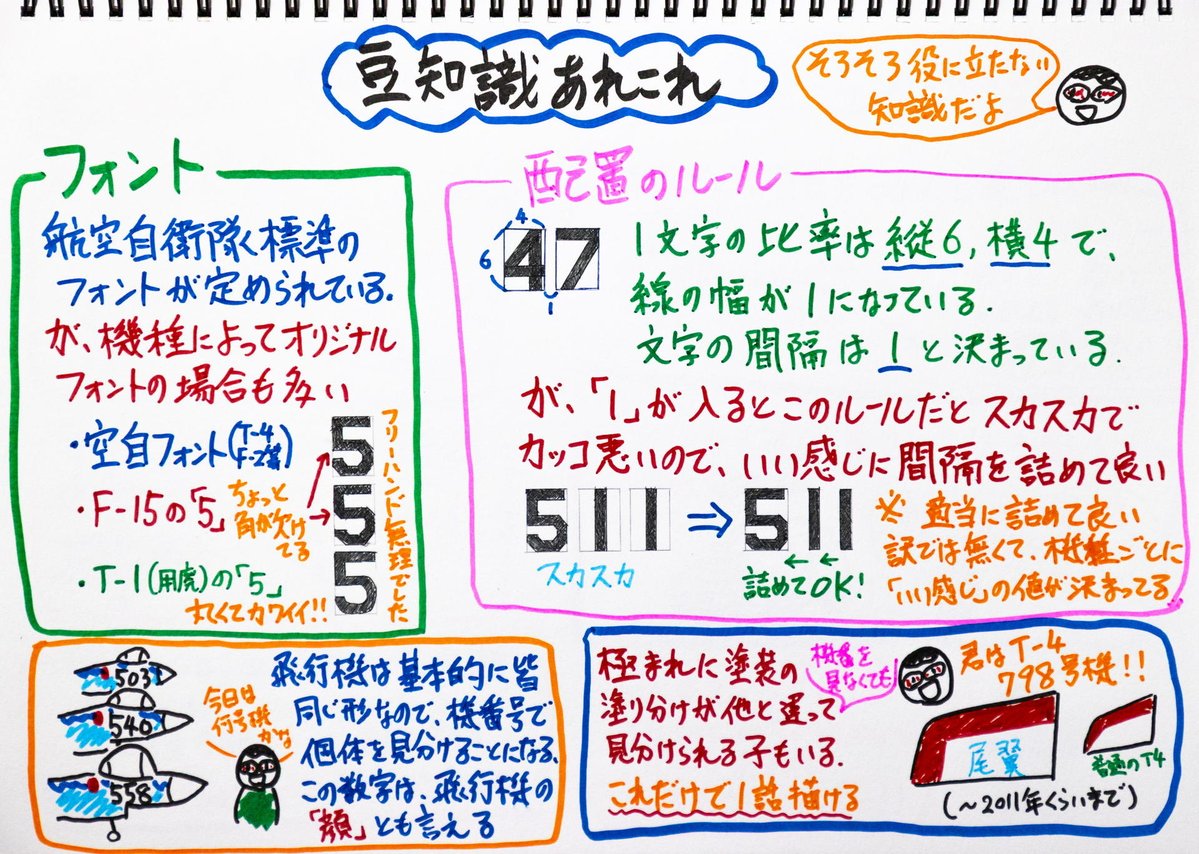 豆知識あれこれ
そろそろ役に立たない
知識だよ
フォント
航空自衛隊く標準の
フォントが定められている.
が、機種によってオリジナル
フォントの場合も多い
・空自フォント(T-4 F-2等)
5
・F-15の「5」
ちょっと
角が欠け
てる
5
・T-1(用廃)の「5」
丸くてカワイイ!!
5
フリーハンド無理でした
配置のルール
4
6
47
1
1文字の比率は縦6,横4で、
線の幅が1になっている.
文字の間隔は1と決まっている.
が、「1」が入るとこのルールだとスカスカで
カッコ悪いので、いい感じに間隔を詰めて良い
511
スカスカ
⇒
511
←←
詰めてOK!
※適当に詰めて良い
訳では無くて、機種ごとに
「いい感じ」の値が決まってる
503
540
558
今日は
何号機
かな
飛行機は基本的に皆
同じ形なので、機番号で
個体を見分けることになる、
この数字は、飛行機の
「顔」とも言える
極まれに塗装の
塗り分けが他と違って
見分けられる子もいる.
これだけで1話描ける
機番を
見なくても
君はT-4
798号機!!
尾翼
普通のT4
(~2011年くらいまで)